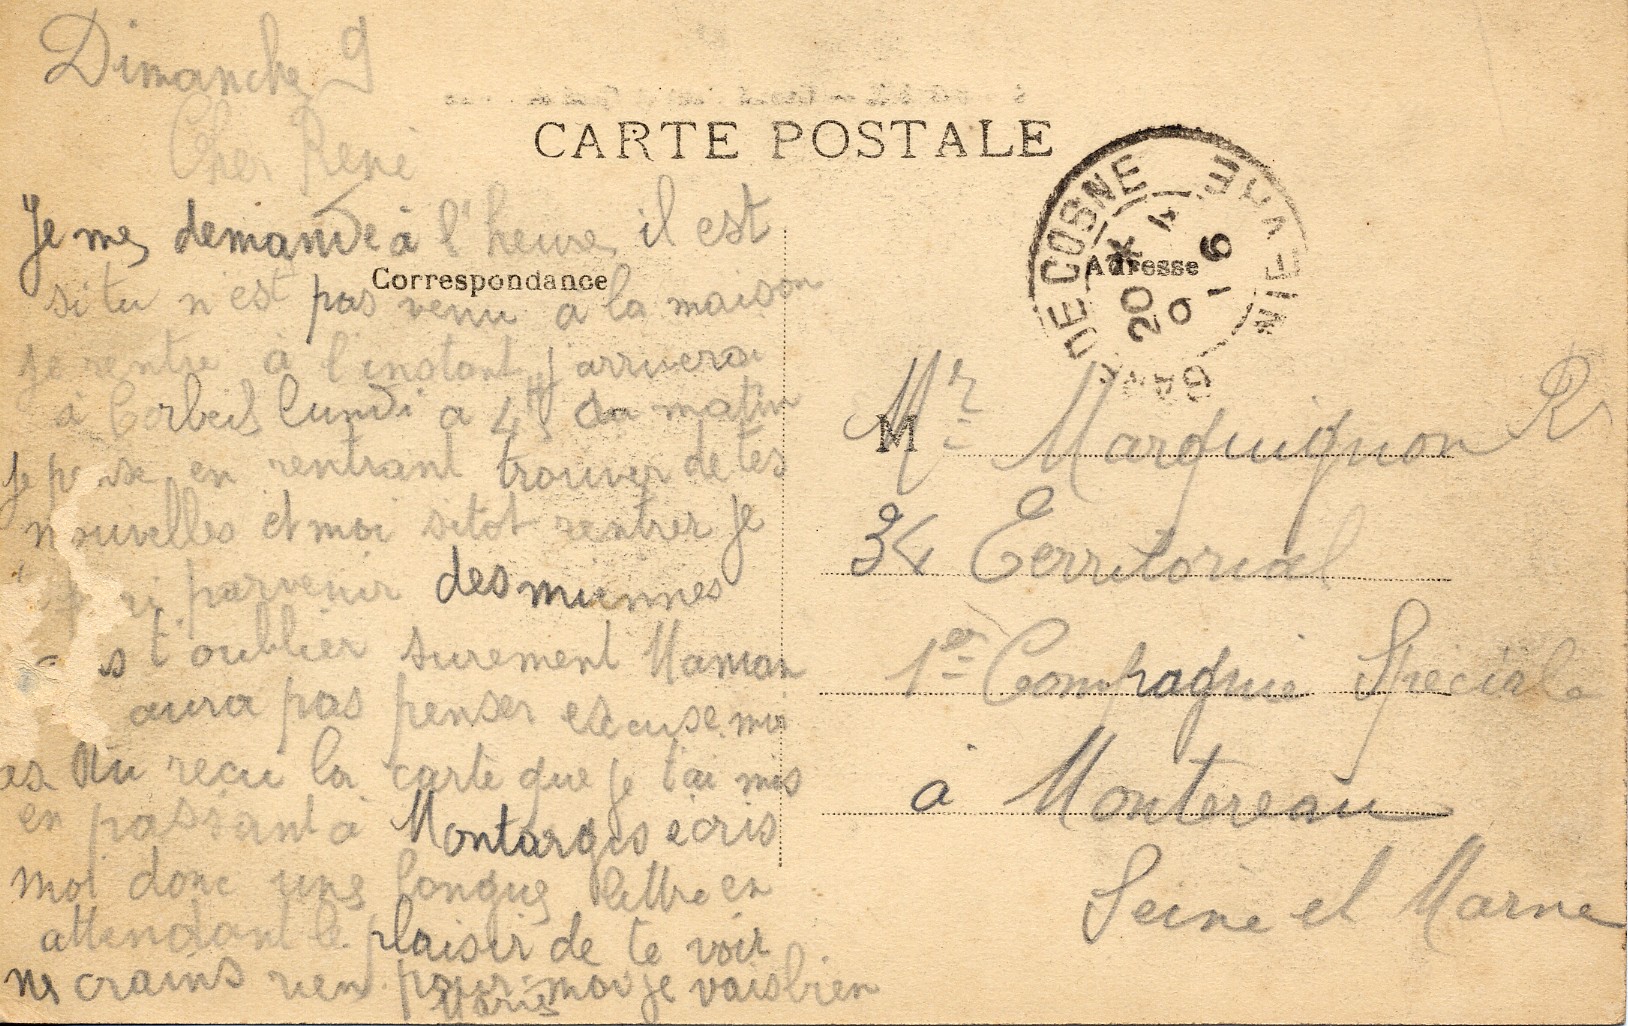 Dimanche 9
Cher René
CARTE POSTALE
Je me demande à l'heure il est
Correspondance
si tu n'est pas venu a la maison
je rentre à l'instant j'arriverai
à Corbeil lundi a 4h du matin
je pense en rentrant trouver de tes
nouvelles et moi sitot rentrer je
parvenir des miennes
t'oublier surement Maman
aura pas penser escuse moi
as tu reçu la carte que je t'ai mis
en passant à Montargis écris
moi donc une longue lettre en
attendant le plaisir de te voir
ne crains rien pour moi je vais bien
Marie
GARE DE COSNE NIEVRE
20 * 4
9 - 16
Adresse
M
Mr Marquignon R
34 Territorial
1er Compagnie Speciale
à Montereau
Seine et Marne